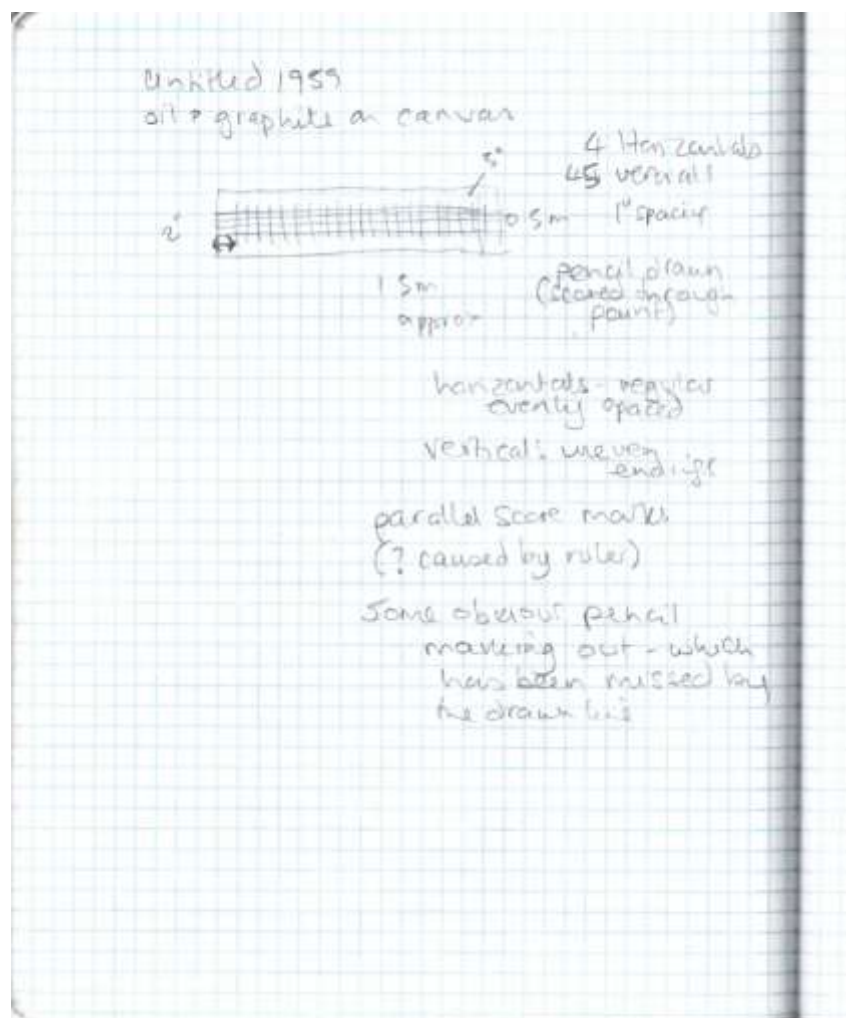 Untitled 1959
oil + graphite on canvas
4 Horizontals
45 verticals
3"
1" spacing
2"
0.5m
1.5m
approx
pencil drawn
(scored through
paint)
horizontals - regular
evenly spaced
vertical: uneven
endings
parallel score marks
(? caused by ruler)
Some obvious pencil
marking out - which
has been missed by
the drawn line